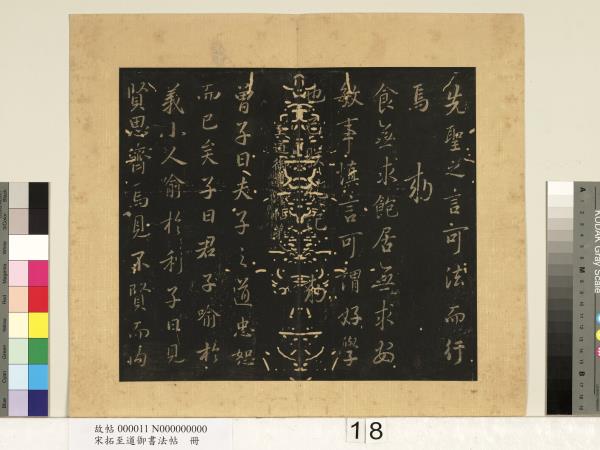 先聖之言可法而行
焉 勅
食無求飽居無求安
敏事慎言可謂好學
也已
曾子曰夫子之道忠恕
而已矣子曰君子喻於
義小人喻於利子曰見
賢思齊焉見不賢而內
故帖 000011 N000000000
宋拓至道御書法帖 冊
18
KODAK Gray Scale
A 1 2 3 4 5 6 M 8 9 10 11 12 13 14 15 B 17 18 19
Black
White
Magenta
Red
Yellow
Green
Cyan
Blue